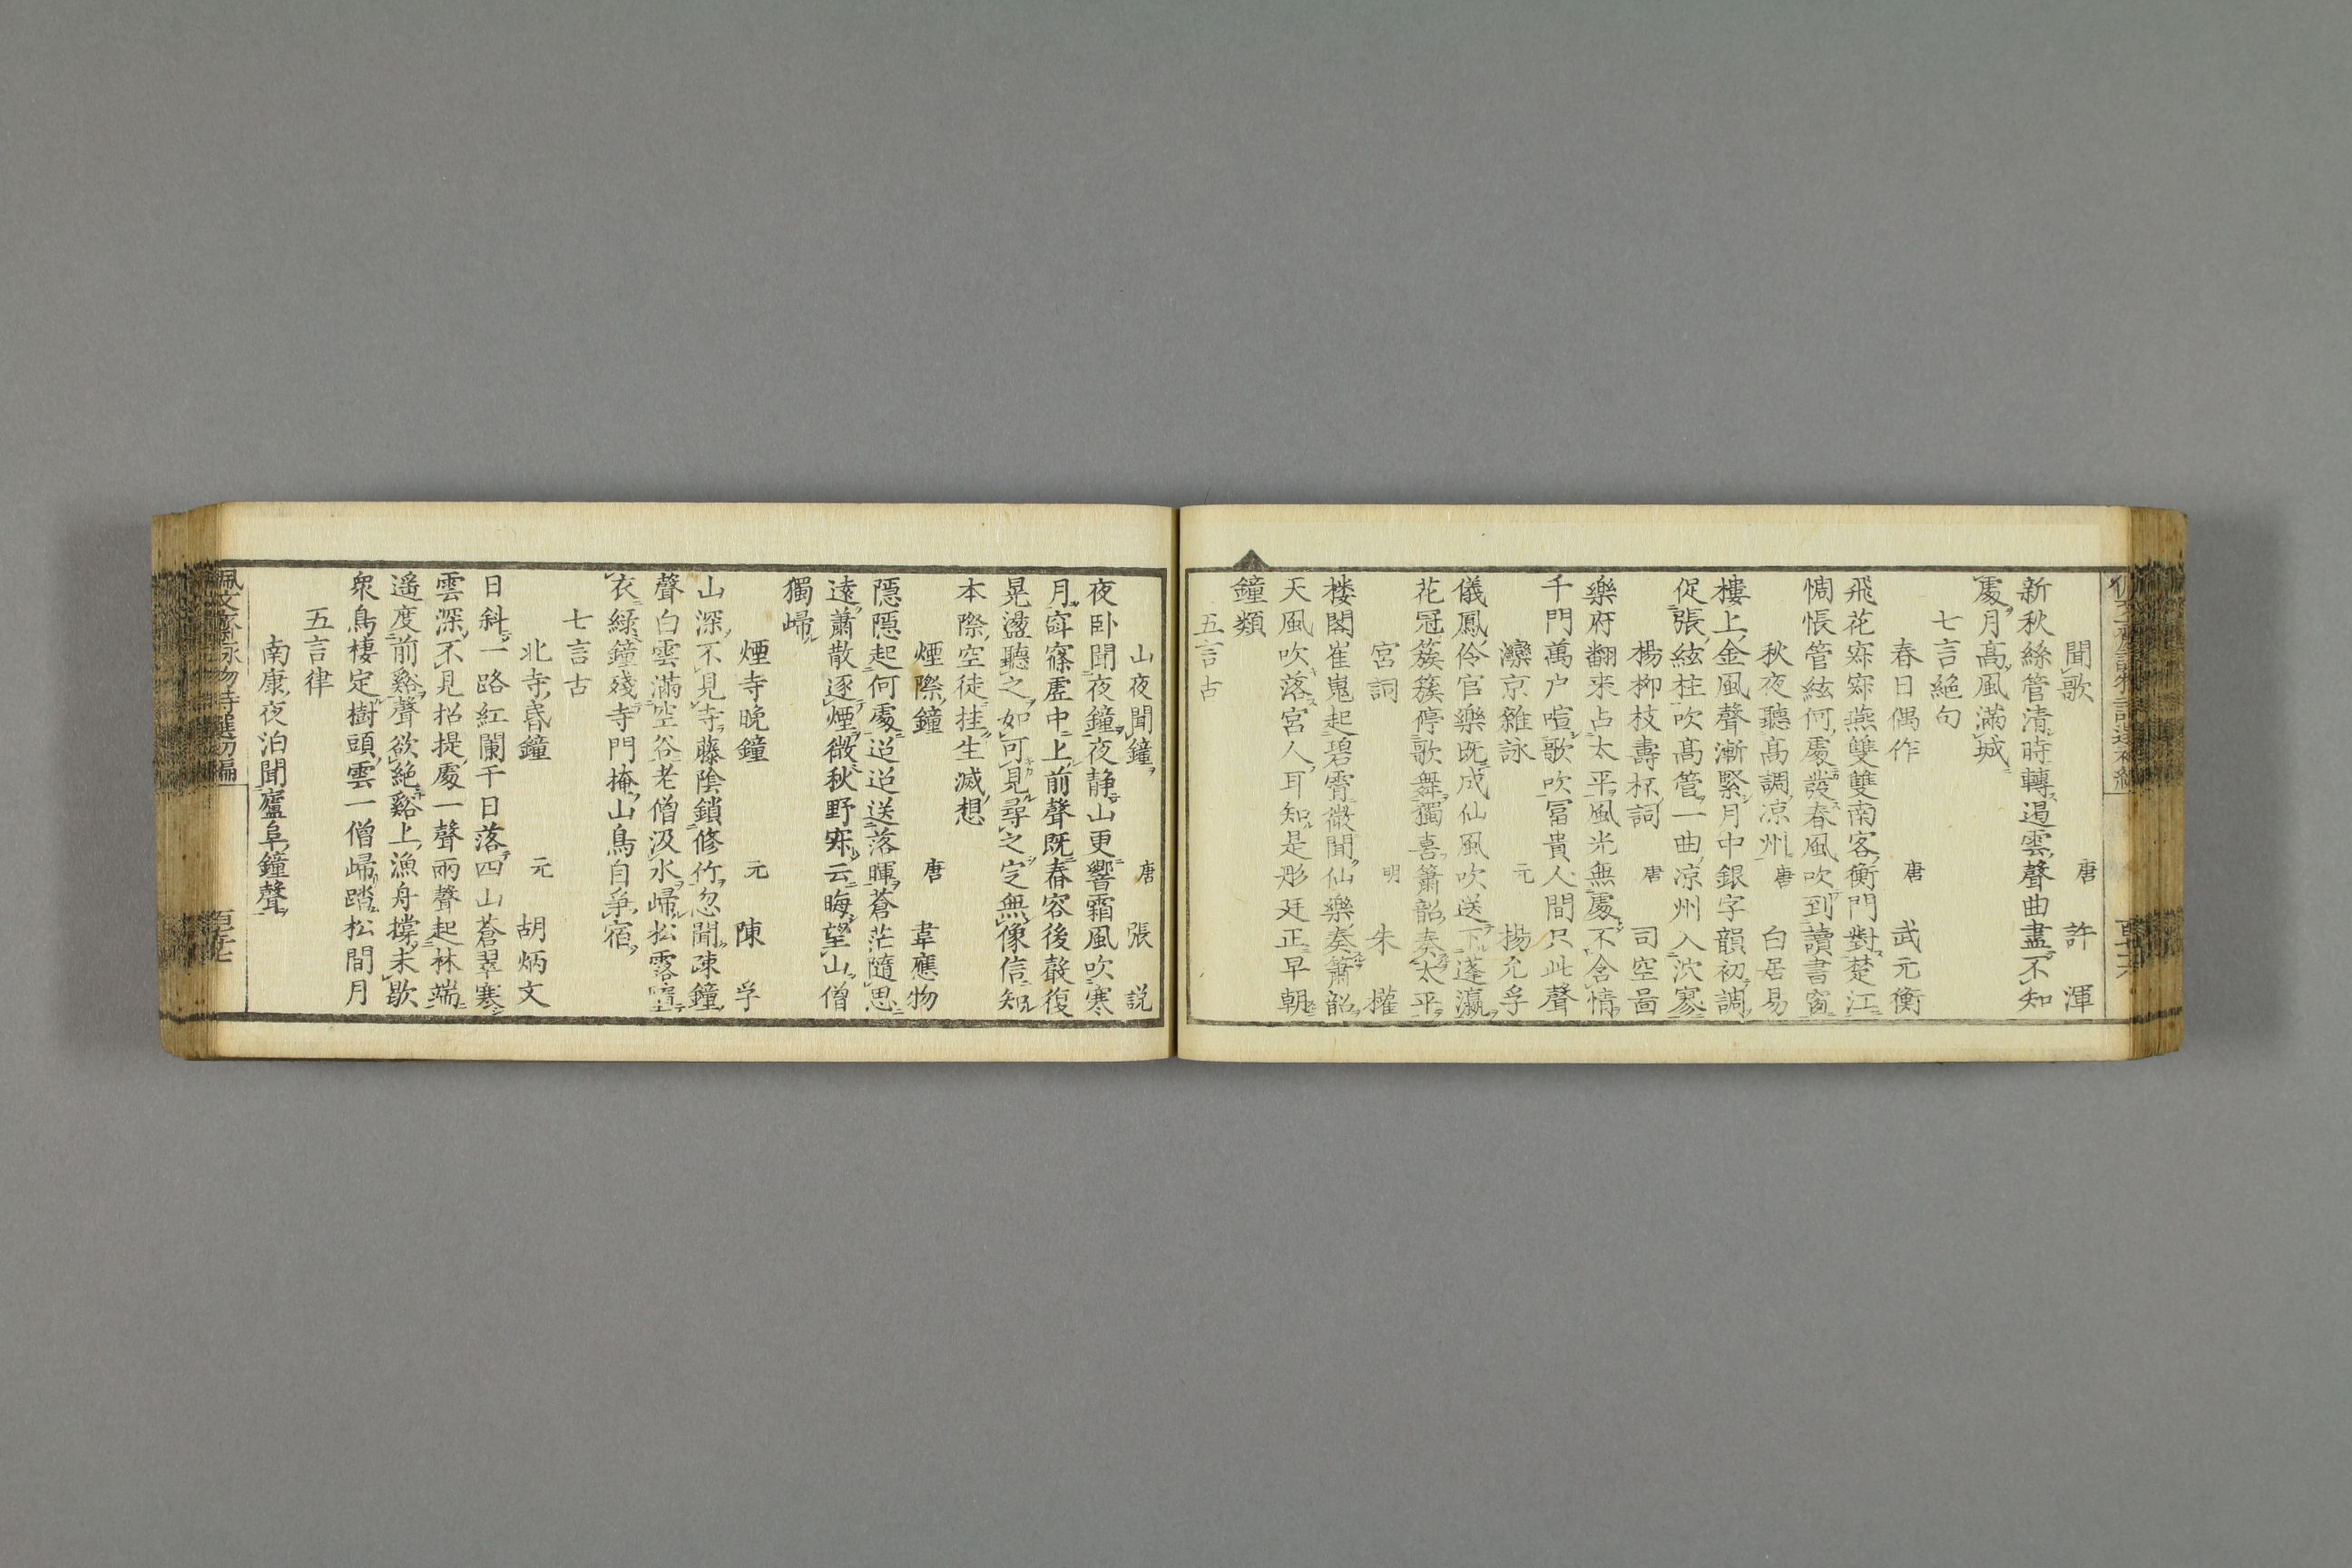 聞歌 唐 許渾
新秋絲管清時轉遏雲聲曲盡不知
處月高風滿城
七言絶句
春日偶作 唐 武元衡
飛花寂寂燕雙雙南客衡門對楚江
惆悵管絃何處發春風吹到讀書窗
秋夜聽高調凉州 唐 白居易
樓上金風聲漸緊月中銀字韻初調
促張絃柱吹高管一曲凉州入泬寥
楊柳枝壽杯詞 唐 司空啚
樂府翻来占太平風光無處不含情
千門萬户喧歌吹冨貴人間只此聲
灤京雜詠 元 楊允孚
儀鳳伶官樂既成仙風吹送下蓬瀛
花冠簇簇停歌舞獨喜簫韶奏太平
宮詞 明 朱權
楼閣崔嵬起碧霄微聞仙樂奏簫韶
天風吹落宮人耳知是彤廷正早朝
鐘類
五言古
山夜聞鐘 唐 張説
夜卧聞夜鐘夜静山更響霜風吹寒
月窂篠虚中上前聲既舂容後聲復
晃盪聽之如可見尋之定無像信知
本際空徒挂生滅想
煙際鐘 唐 韋應物
隱隱起何處迢迢送落暉蒼茫隨思
遠蕭散逐煙微秋野寂云晦望山僧
獨歸
煙寺晚鐘 元 陳孚
山深不見寺藤陰鎖修竹忽聞疎鐘
聲白雲滿空谷老僧汲水歸松露墮
衣緑鐘殘寺門掩山鳥自爭宿
七言古
北寺昏鐘 元 胡炳文
日斜一路紅闌干日落四山蒼翠寒
雲深不見招提處一聲兩聲起林端
遥度前谿聲欲絶谿上漁舟撐未歇
衆鳥棲定樹頭雲一僧歸踏松間月
五言律
南康夜泊聞廬阜鐘聲
佩文齋詠物詩選初編 百廿七